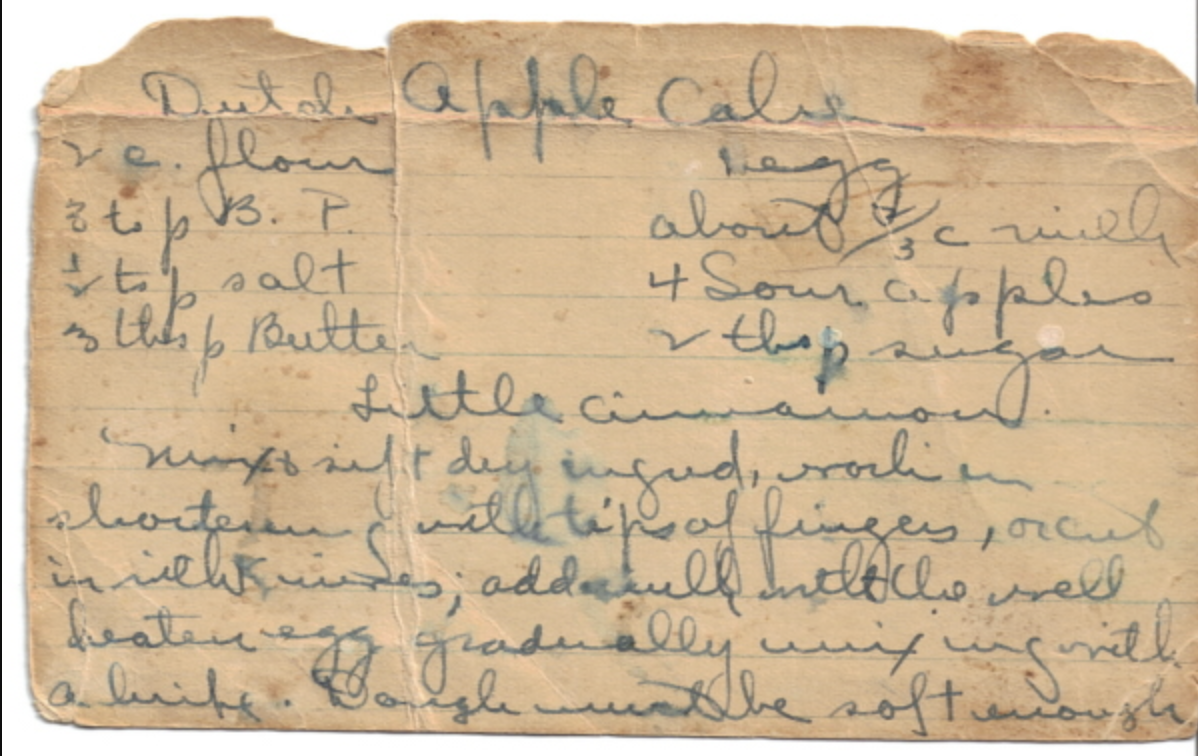 Dutch Apple Cake
2 c. flour 1 egg
3 tsp B. P. about 2/3 c milk
1/2 tsp salt 4 Sour apples
3 tbsp Butter 2 tbsp sugar
Little cinnamon.
Mix & sift dry ingred, work in
shortening with tips of fingers, or cut
in with knives; add milk with the well
beaten egg gradually mixing with
a knife. Dough must be soft enough